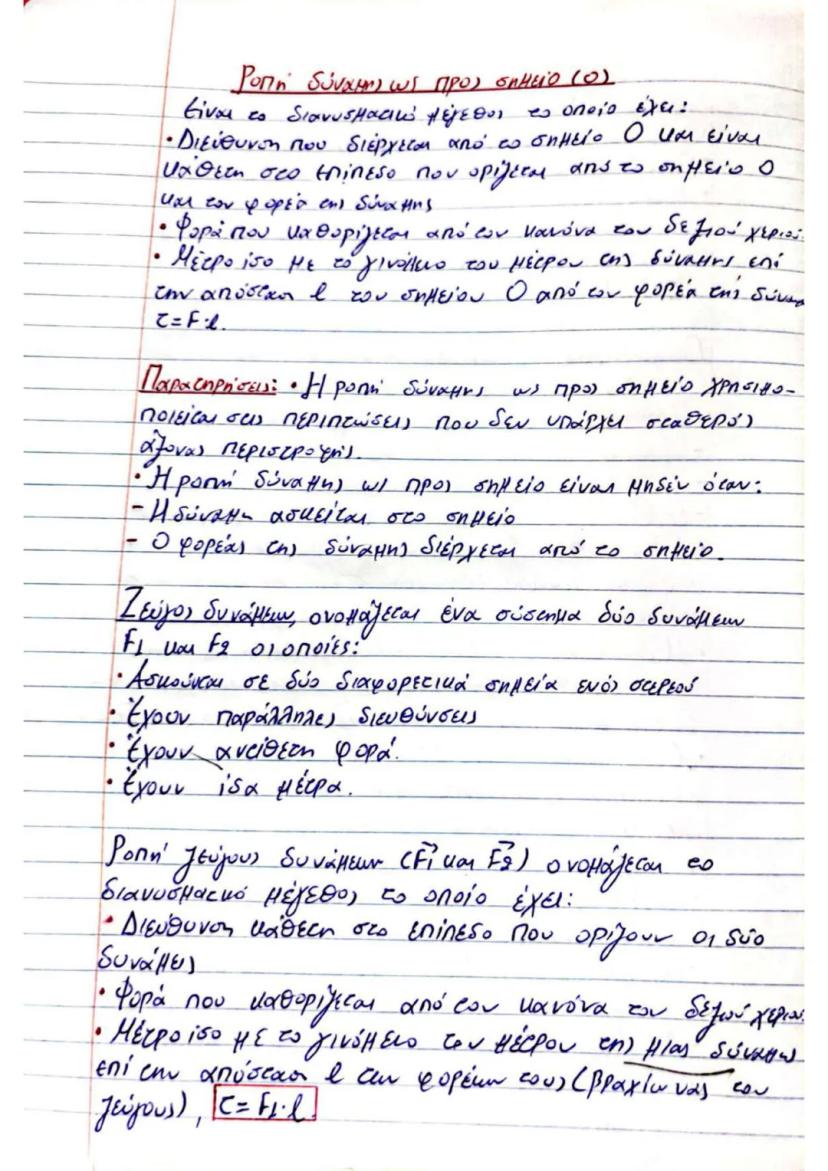 Ροπή δύναμης ως προς σημείο (Ο)
Είναι το διανυσματικό μέγεθος το οποίο έχει:
• Διεύθυνση που διέρχεται από το σημείο Ο και είναι
κάθετη στο επίπεδο που ορίζεται από το σημείο Ο
και τον φορέα της δύναμης
• Φορά που καθορίζεται από τον κανόνα του δεξιού χεριού.
• Μέτρο ίσο με το γινόμενο του μέτρου της δύναμης επί
την απόσταση l του σημείου Ο από τον φορέα της δύναμ
τ=F·l.
Παρατηρήσεις: • Η ροπή δύναμης ως προς σημείο χρησιμο-
ποιείται στις περιπτώσεις που δεν υπάρχει σταθερός
άξονας περιστροφής.
• Η ροπή δύναμης ως προς σημείο είναι μηδέν όταν:
- Η δύναμη ασκείται στο σημείο
- Ο φορέας της δύναμης διέρχεται από το σημείο.
Ζεύγος δυνάμεων, ονομάζεται ένα σύστημα δύο δυνάμεων
F1 και F2 οι οποίες:
• Ασκούνται σε δύο διαφορετικά σημεία ενός στερεού
• Έχουν παράλληλες διευθύνσεις
• Έχουν αντίθετη φορά.
• Έχουν ίσα μέτρα.
Ροπή ζεύγους δυνάμεων (F1 και F2) ονομάζεται το
διανυσματικό μέγεθος το οποίο έχει:
• Διεύθυνση κάθετη στο επίπεδο που ορίζουν οι δύο
δυνάμεις
• Φορά που καθορίζεται από τον κανόνα του δεξιού χεριού.
• Μέτρο ίσο με το γινόμενο του μέτρου της μιας δύναμης
επί την απόσταση l των φορέων τους (βραχίονας του
ζεύγους), τ= F1·l.